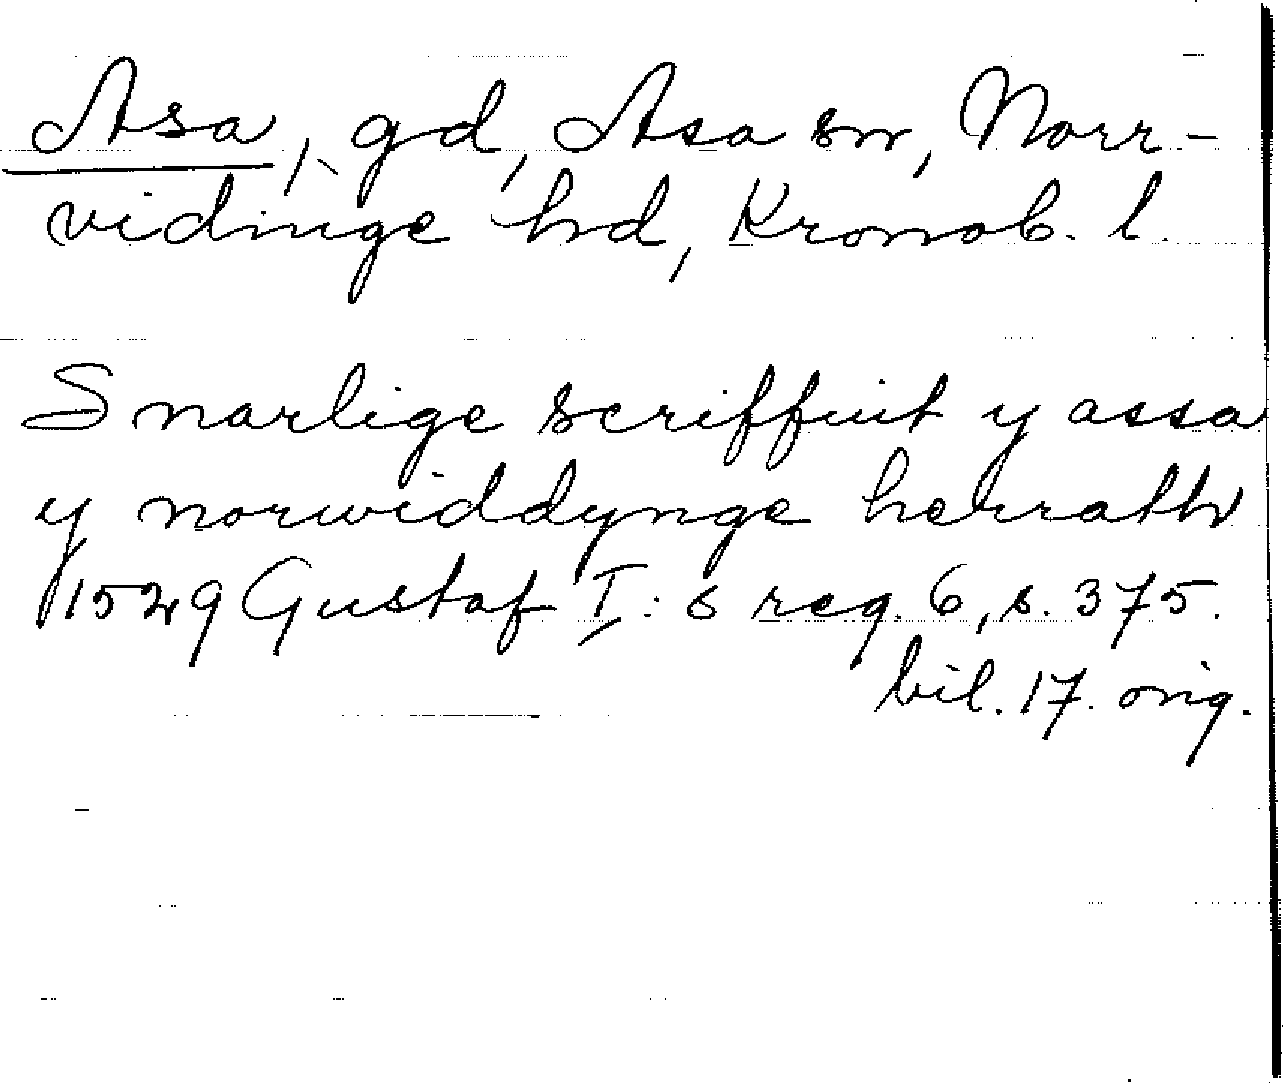 Asa, gd, Asa sn, Norr-
vidinge hd, Kronob. l.
Snarlige scriffuit y assa
y norwiddynge herrath
1529 Gustaf I:s reg. 6, s. 375.
bil. 17. orig.